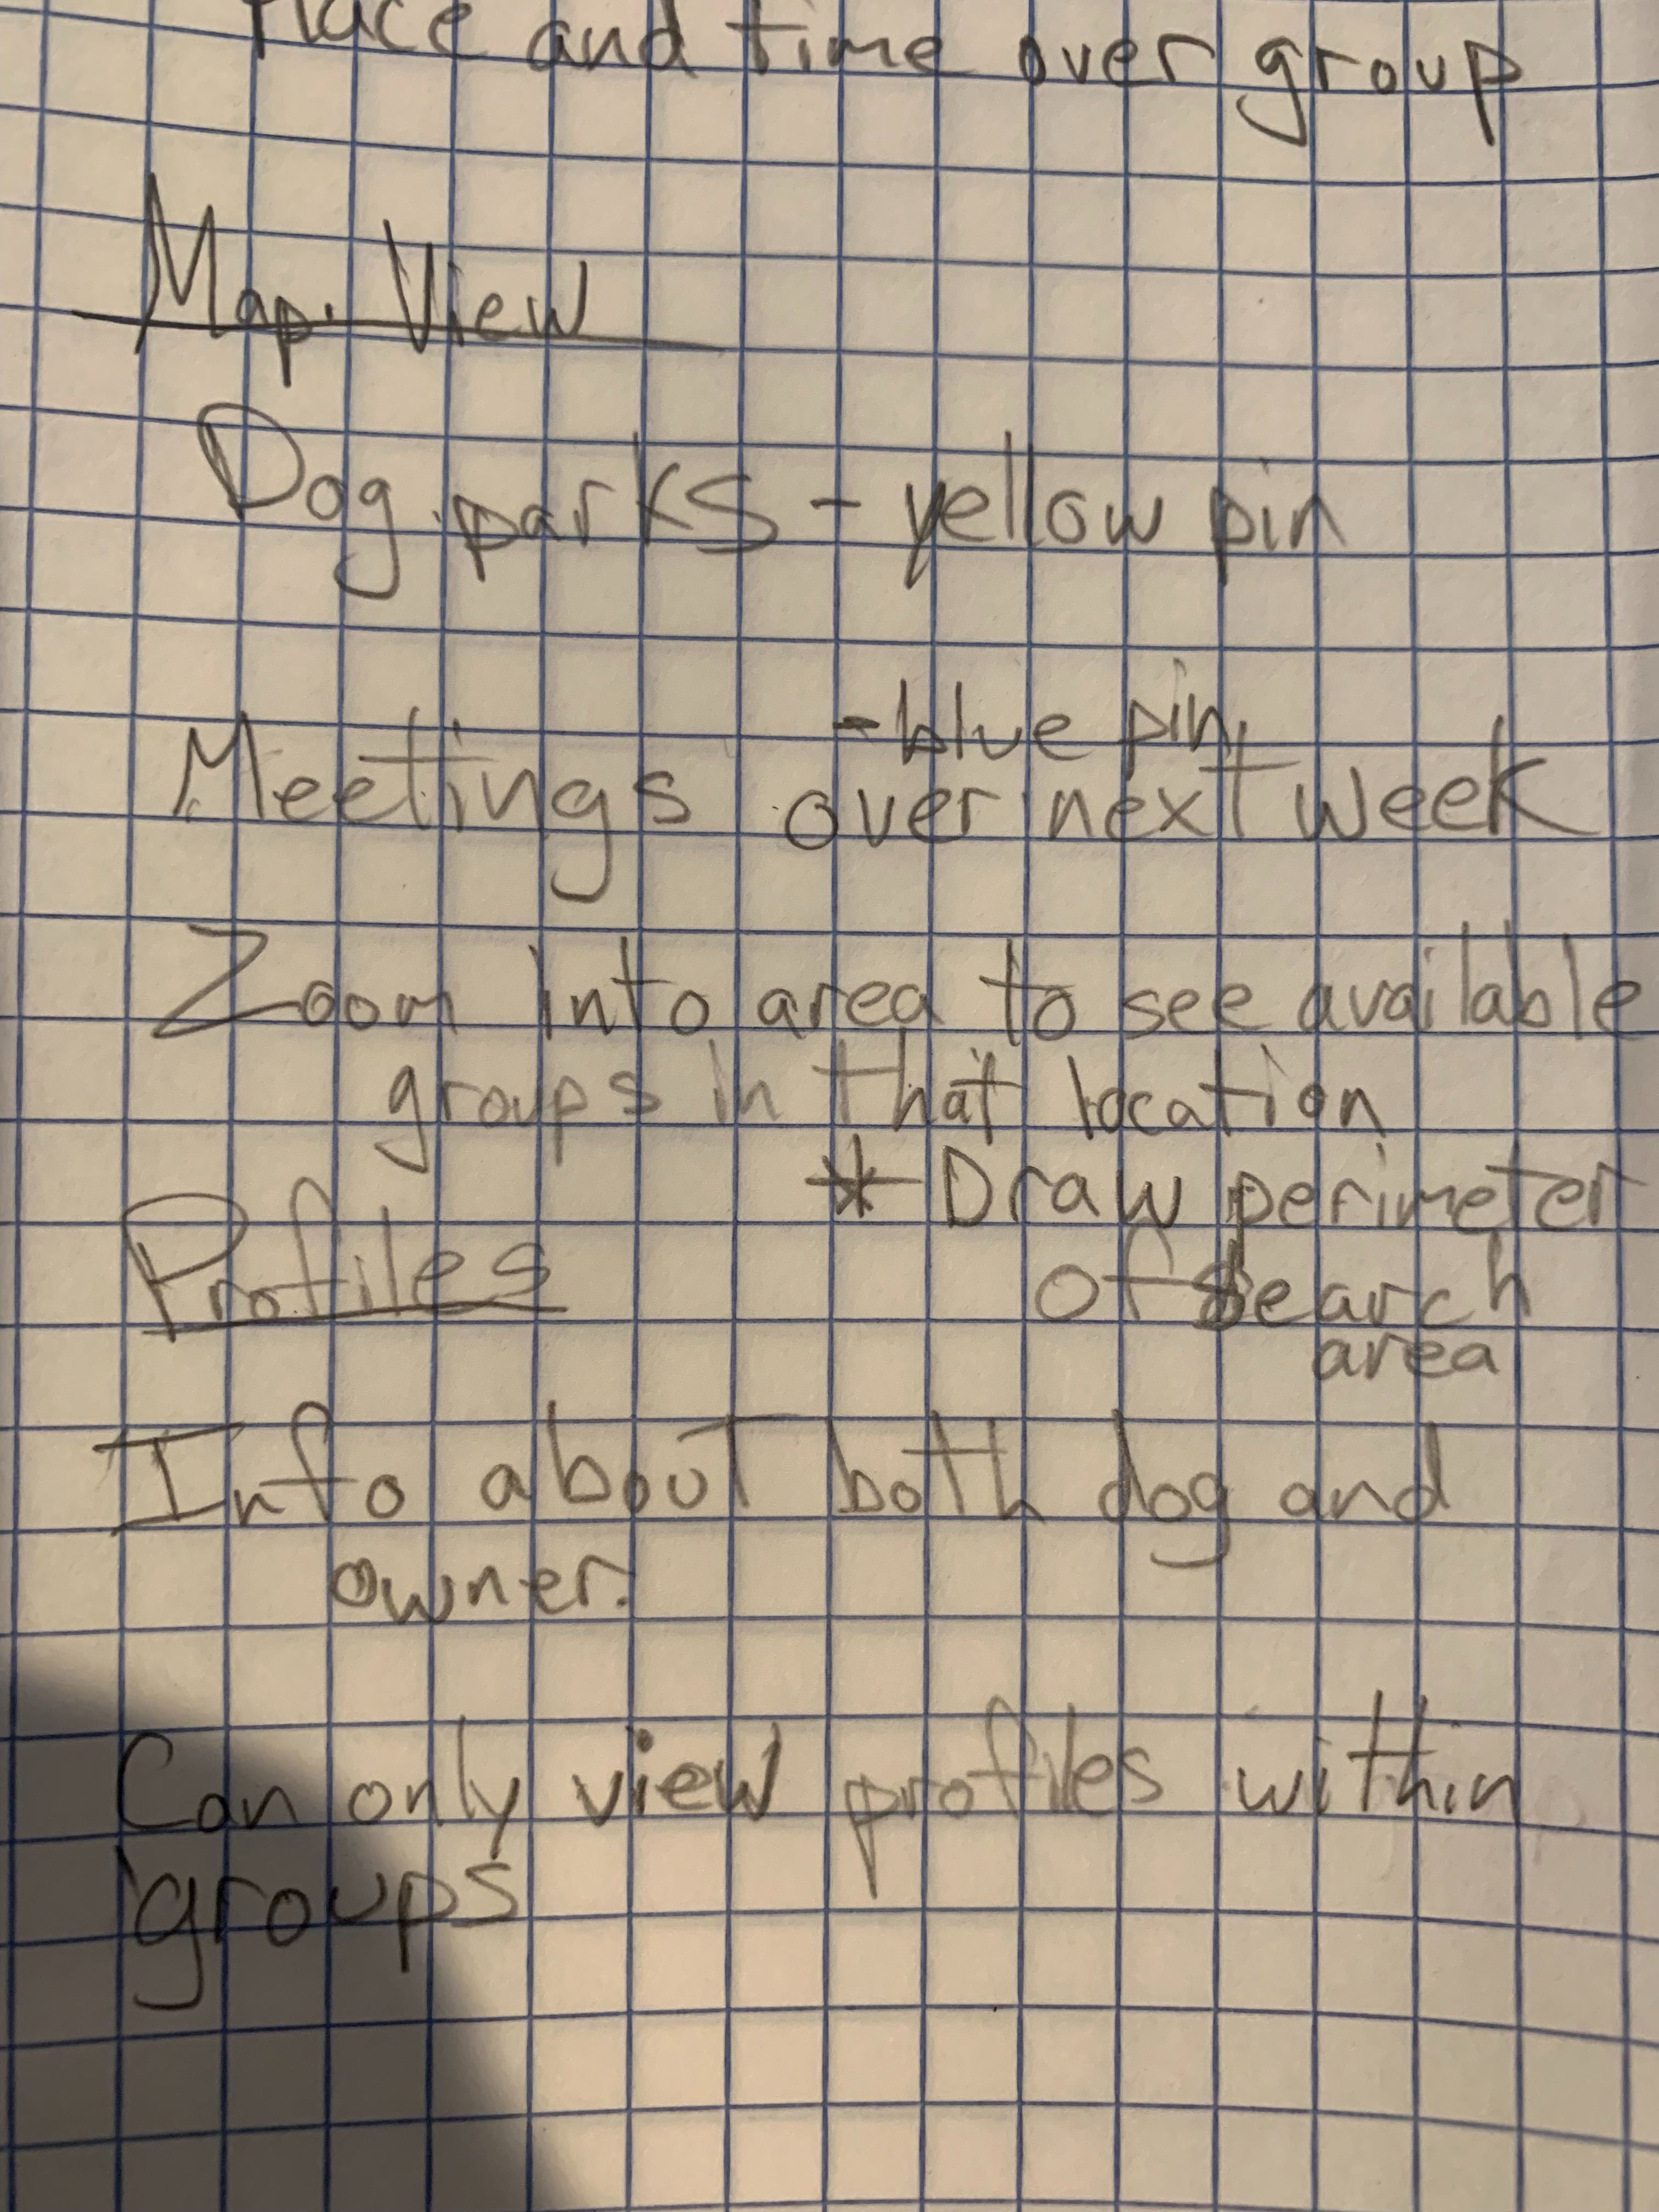 Place and time over group
Map View
Dog parks - yellow pin
- blue pin
Meetings over next week
Zoom into area to see available
groups in that location
* Draw perimeter
of search
area
Profiles
Info about both dog and
owner.
Can only view profiles within
groups